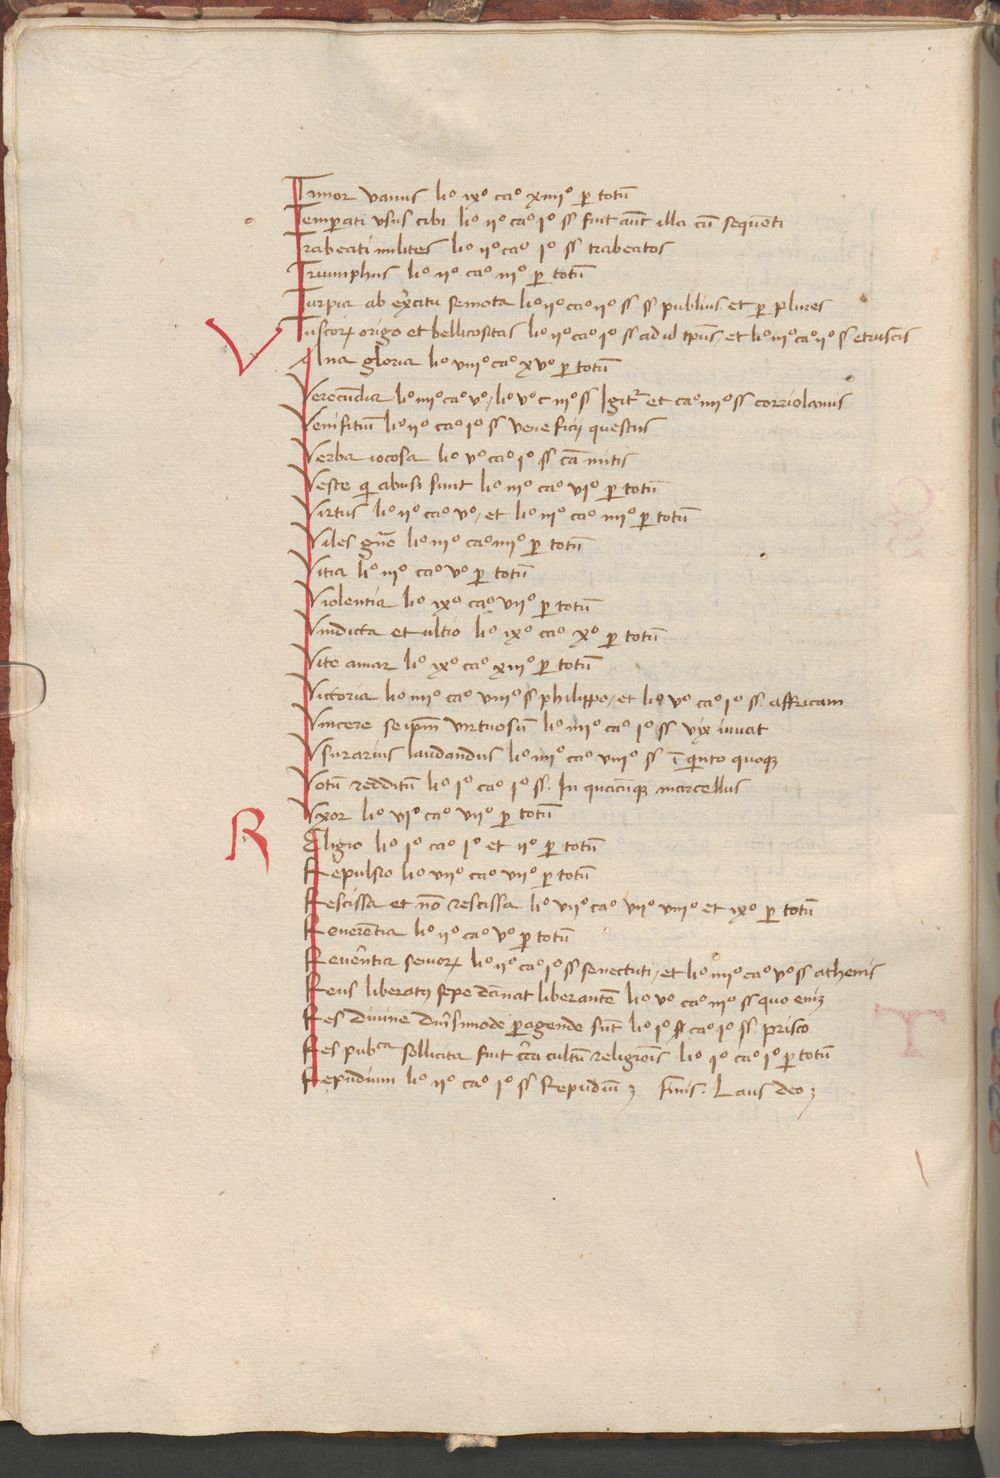 Timor vanus li° ix° ca° xiiii° ꝑ totū
Temperati usus cibi li° ii° ca° i° ss fuit aūt illa cū sequēti
Trabeati milites li° ii° ca° i° ss trabeatos
Triumphus li° ii° ca° iii° ꝑ totū
Turpia ab exercitu semota li° ii° ca° ii° ss publius et ꝑ plures
Tuscoꝝ origo et bellicositas li° ii° ca° i° ss ad id tp̄us, et li° iii° ca° ii° ss etruscis
V Ana gloria li° viiii° ca° xv° ꝑ totū
Verecūdia li° iiii° ca° v°, li° v° c iii° ss Igit et ca° iiii° ss corriolanus
Venifitiū li° ii° ca° i° ss veneficij questus
Verba iocosa li° v° ca° i° ss
Veste q abusi sunt li° iii° ca° vi° ꝑ totū
Virtus li° ii° ca° v°, et li° iii° ca° iiii° ꝑ totū
Viles gn̄e li° iii° ca° iiii° ꝑ totū
Vitia li° iii° ca° v° ꝑ totū
Violentia li° ix° ca° vii° ꝑ totū
Vindicta et ultio li° ix° ca° x° ꝑ totū
Vite amar li° ix° ca° xiii° ꝑ totū
Victoria li° iiii° ca° viiii° ss philippo, et li° v° ca° i° ss. affricam
Vincere seip̄m virtuosū li° iiii° ca° i° ss vix iuuat
Vsurarius laudandus li° iiii° ca° viiii° ss ī quinto quoqꝫ
Votū redditū li° i° ca° i° ss. In quacūqꝫ marcellus
Vxor li° vi° ca° vii° ꝑ totū
R Eligio li° i° ca° i° et ii° ꝑ totū
Repulsio li° vii° ca° vii° ꝑ totū
Rescissa et nō rescissa li° vii° ca° vii° viii° et ix° ꝑ totū
Reuerētia li° ii° ca° v° ꝑ totū
Reuerētia senioꝝ li° ii° ca° i° ss senectuti, et li° iiii° ca° v° ss athenis
Reus liberatꝰ sepe dānat liberantē li° v° ca° iii° ss quo eniꝫ
Res diuine ꝑagende sūt li° i° ca° i° ss. prisco
Res pubᶜᵃ sollicita fuit cir̄ca cultū religiōis li° i° ca° i° ꝑ totū
Repudium li° ii° ca° i° ss Repudiūꝫ Finis. Laus deoꝫ